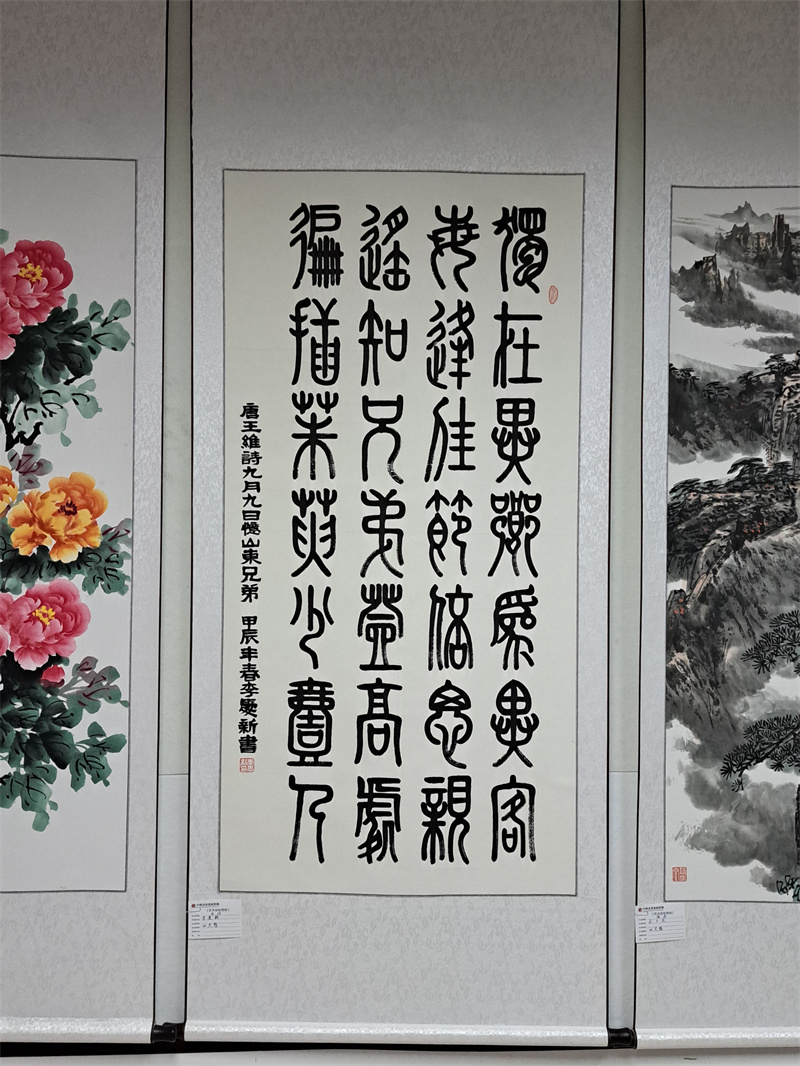 獨在異鄉爲異客
每逢佳節倍思親
遙知兄弟登高處
徧插茱萸少壹人
唐王維詩九月九日憶山東兄弟 甲辰年春李慶新書